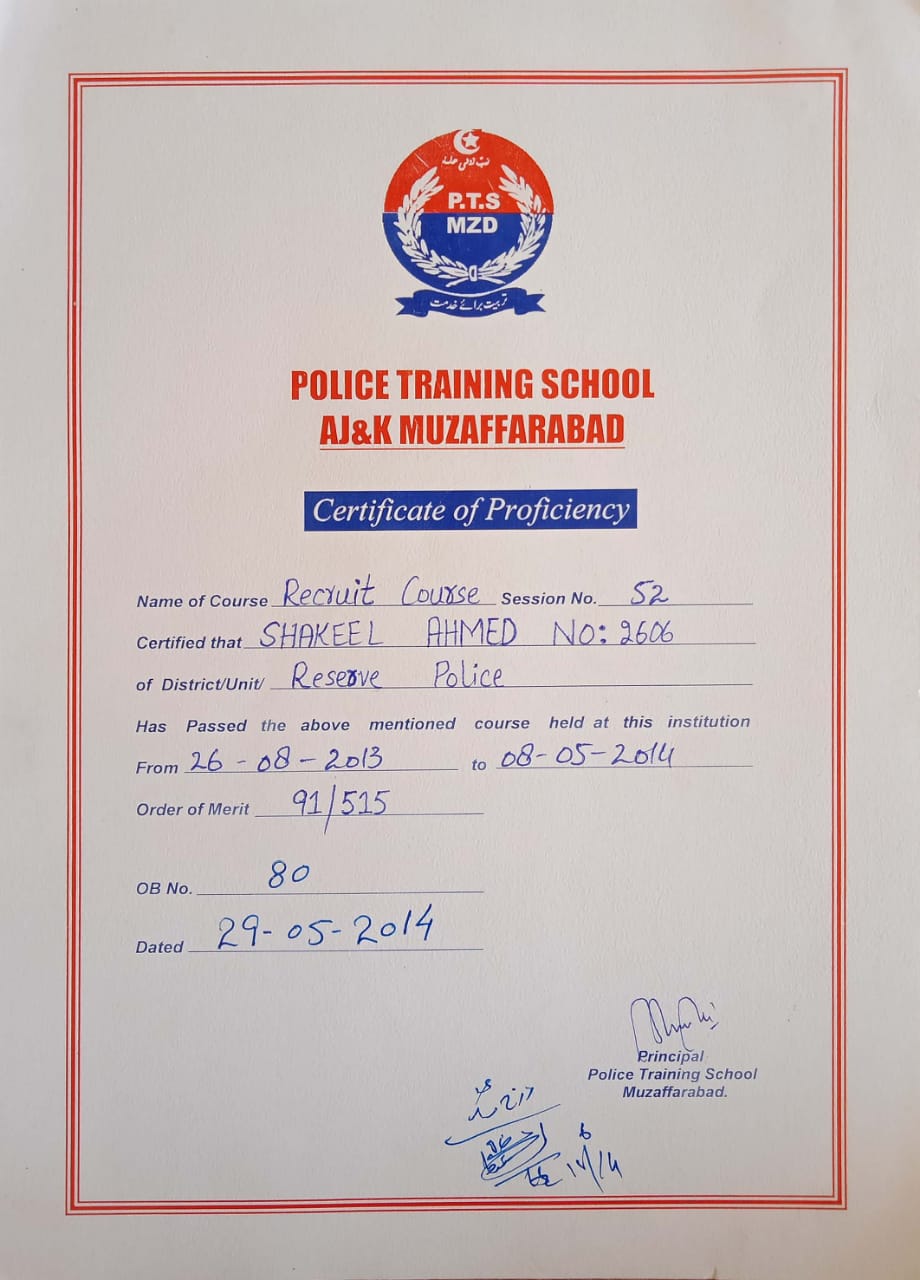 P.T.S
MZD
تربیت برائے خدمت
POLICE TRAINING SCHOOL
AJ&K MUZAFFARABAD
Certificate of Proficiency
Name of Course Recruit Course Session No. 52
Certified that SHAKEEL AHMED NO: 2606
of District/Unit/ Reserve Police
Has Passed the above mentioned course held at this institution
From 26-08-2013 to 08-05-2014
Order of Merit 91/515
OB No. 80
Dated 29-05-2014
Principal
Police Training School
Muzaffarabad.